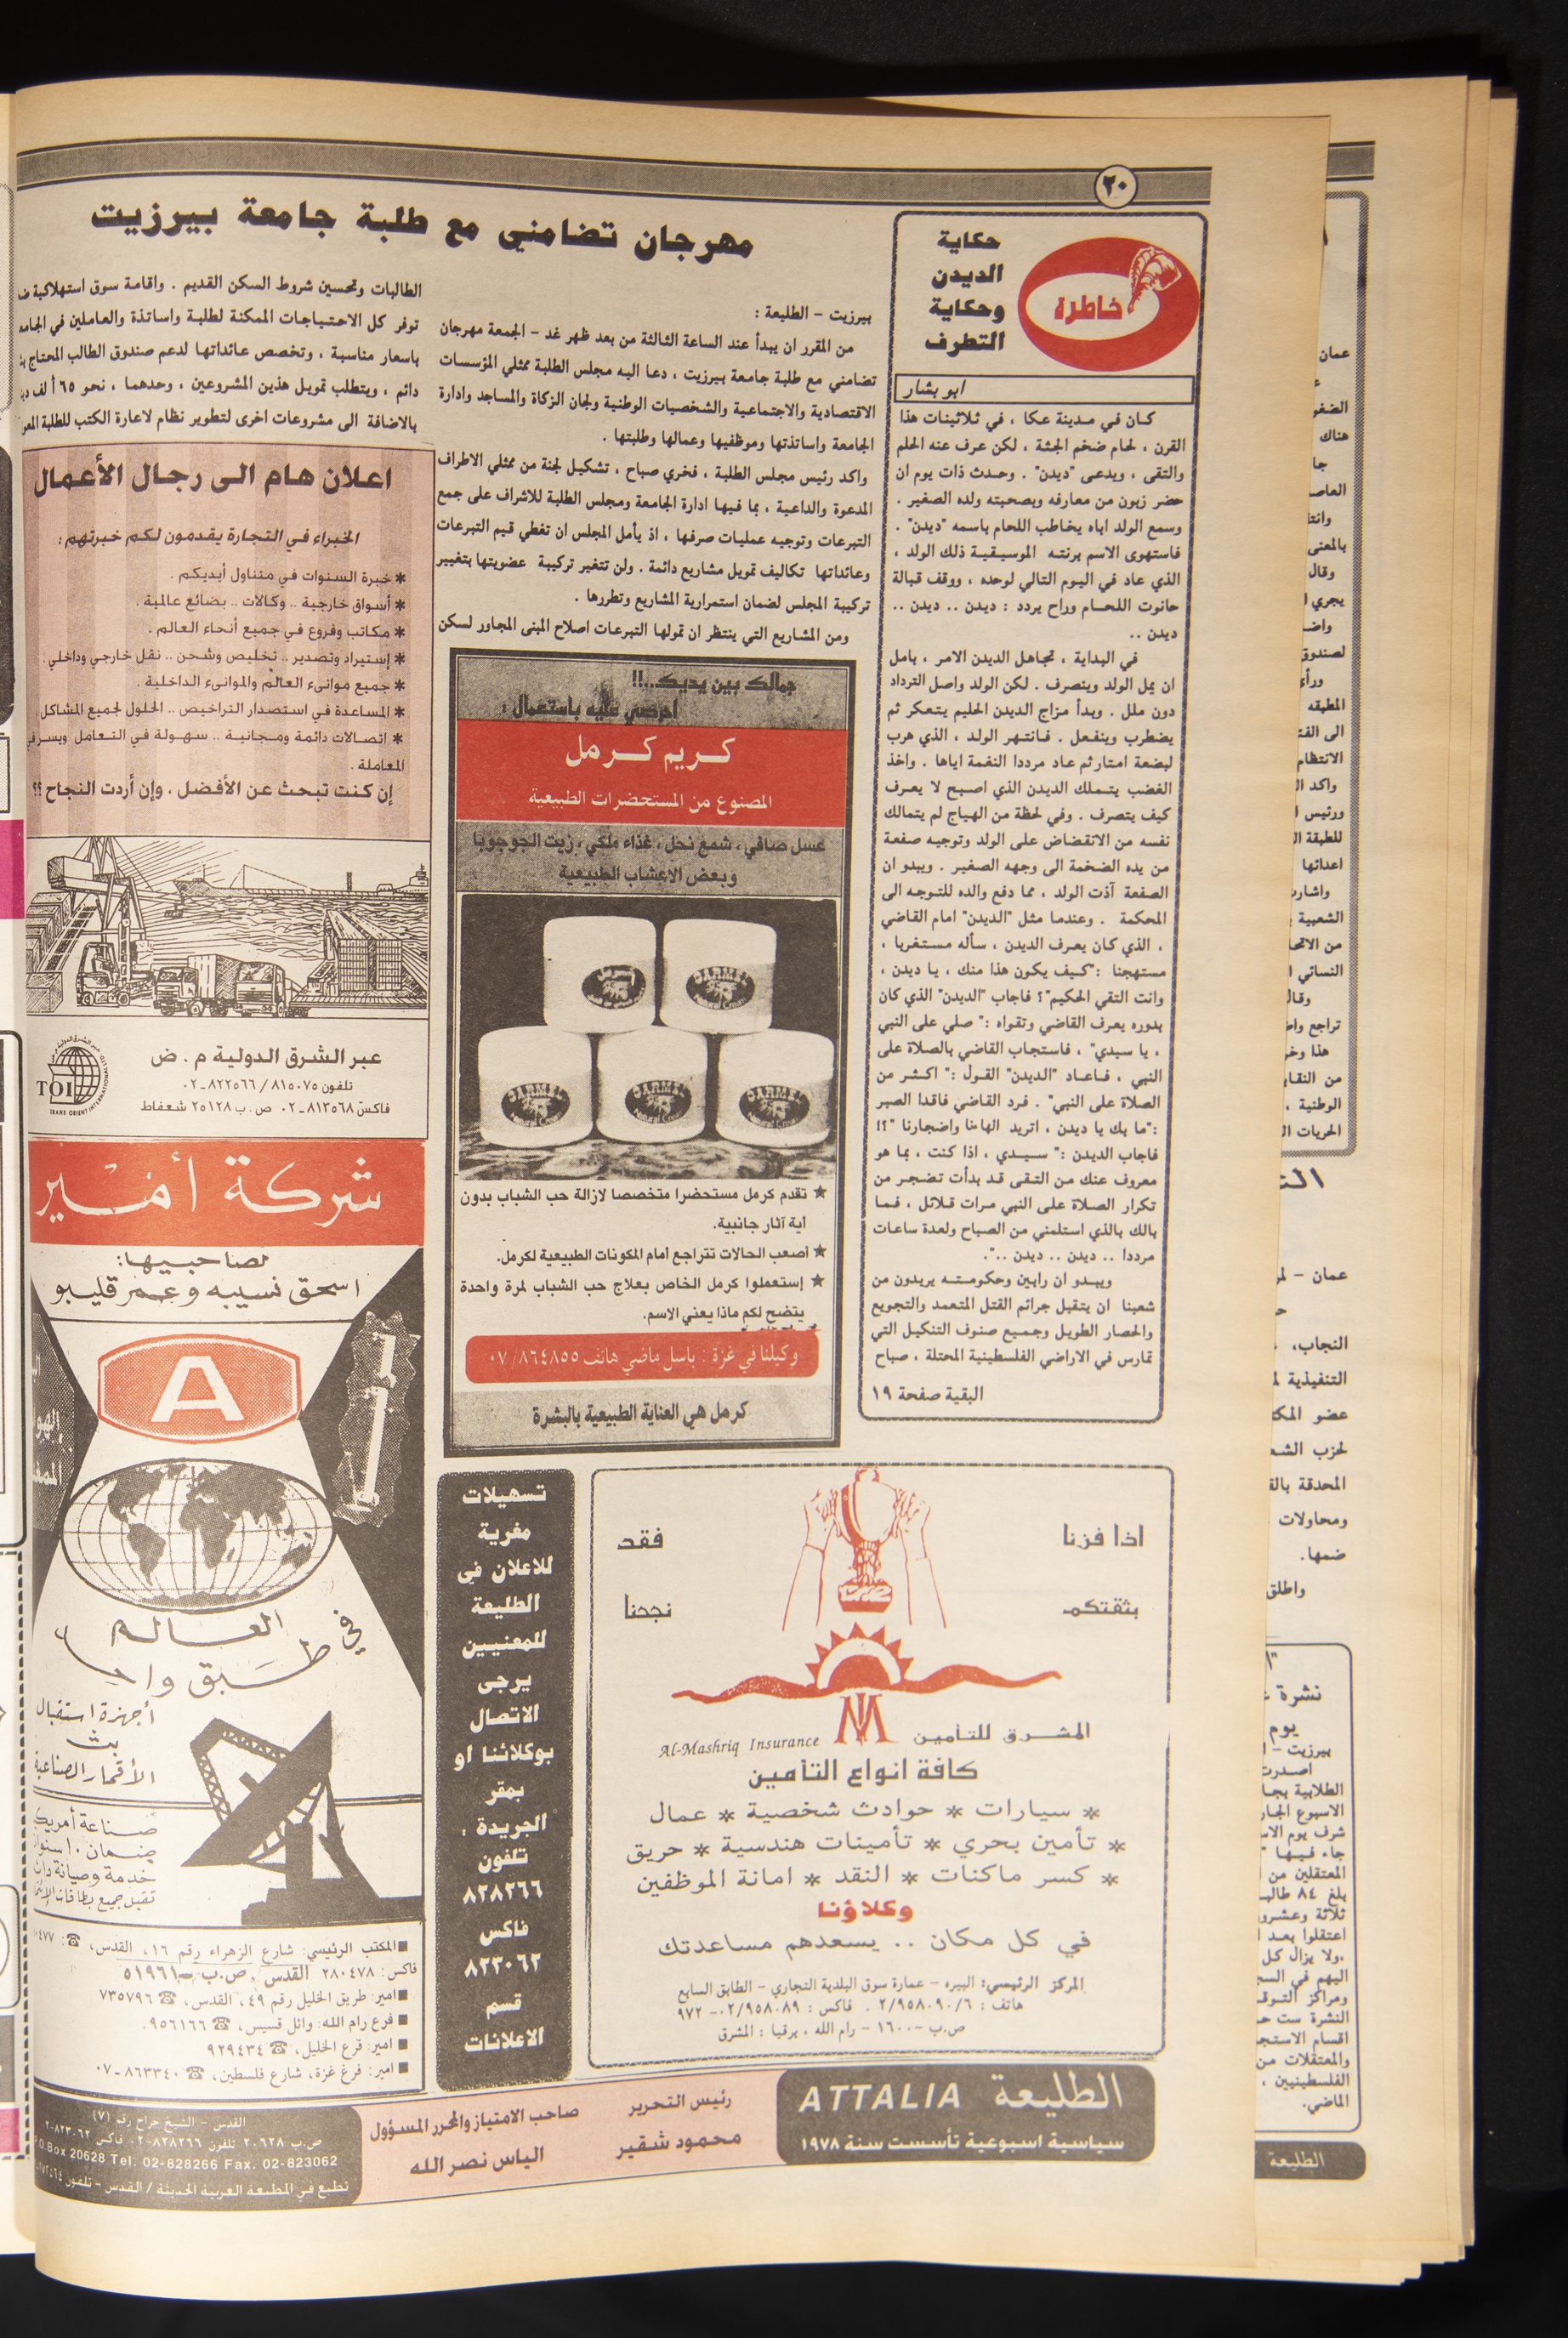 ٢٠
خاطرة
حكاية
الديدن
وحكاية
التطرف
ابو بشار
كان في مدينة عكا ، في ثلاثينات هذا
القرن ، لحام ضخم الجثة ، لكن عرف عنه الحلم
والتقى ، ويدعى "ديدن" . وحدث ذات يوم ان
حضر زبون من معارفه وبصحبته ولده الصغير .
وسمع الولد اباه يخاطب اللحام باسمه "ديدن" .
فاستهوى الاسم برنته الموسيقية ذلك الولد ،
الذي عاد في اليوم التالي لوحده ، ووقف قبالة
حانوت اللحام وراح يردد : ديدن .. ديدن ..
ديدن ..
في البداية ، تجاهل الديدن الامر ، بامل
ان يمل الولد وينصرف . لكن الولد واصل الترداد
دون ملل . وبدأ مزاج الديدن الحليم يتعكر ثم
يضطرب وينفعل . فانتهر الولد ، الذي هرب
لبضعة امتار ثم عاد مرددا النغمة اياها . واخذ
الغضب يتملك الديدن الذي اصبح لا يعرف
كيف يتصرف . وفي لحظة من الهياج لم يتمالك
نفسه من الانقضاض على الولد وتوجيه صفعة
من يده الضخمة الى وجهه الصغير . ويبدو ان
الصفعة آذت الولد ، مما دفع والده للتوجه الى
المحكمة . وعندما مثل "الديدن" امام القاضي
، الذي كان يعرف الديدن ، سأله مستغربا ،
مستهجنا :"كيف يكون هذا منك ، يا ديدن ،
وانت التقي الحكيم"؟ فاجاب "الديدن" الذي كان
بدوره يعرف القاضي وتقواه :" صلي على النبي
، يا سيدي" ، فاستجاب القاضي بالصلاة على
النبي ، فاعاد "الديدن" القول :" اكثر من
الصلاة على النبي" . فرد القاضي فاقدا الصبر
:"ما بك يا ديدن ، اتريد الهاءنا واضجارنا "؟!
فاجاب الديدن :" سيدي ، اذا كنت ، بما هو
معروف عنك من التقى قد بدأت تضجر من
تكرار الصلاة على النبي مرات قلائل ، فما
بالك بالذي استلمني من الصباح ولعدة ساعات
مرددا .. ديدن .. ديدن ..".
ويبدو ان رابين وحكومته يريدون من
شعبنا ان يتقبل جرائم القتل المتعمد والتجويع
والحصار الطويل وجميع صنوف التنكيل التي
تمارس في الاراضي الفلسطينية المحتلة ، صباح
البقية صفحة ١٩
مهرجان تضامني مع طلبة جامعة بيرزيت
بيرزيت - الطليعة :
من المقرر ان يبدأ عند الساعة الثالثة من بعد ظهر غد - الجمعة مهرجان
تضامني مع طلبة جامعة بيرزيت ، دعا اليه مجلس الطلبة ممثلي المؤسسات
الاقتصادية والاجتماعية والشخصيات الوطنية ولجان الزكاة والمساجد وادارة
الجامعة واساتذتها وموظفيها وعمالها وطلبتها .
واكد رئيس مجلس الطلبة ، فخري صباح ، تشكيل لجنة من ممثلي الاطراف
المدعوة والداعية ، بما فيها ادارة الجامعة ومجلس الطلبة للاشراف على جمع
التبرعات وتوجيه عمليات صرفها ، اذ يأمل المجلس ان تغطي قيم التبرعات
وعائداتها تكاليف تمويل مشاريع دائمة . ولن تتغير تركيبة عضويتها بتغيير
تركيبة المجلس لضمان استمرارية المشاريع وتطورها .
ومن المشاريع التي ينتظر ان تمولها التبرعات اصلاح المبنى المجاور لسكن
الطالبات وتحسين شروط السكن القديم . واقامة سوق استهلاكية
توفر كل الاحتياجات الممكنة لطلبة واساتذة والعاملين في
باسعار مناسبة ، وتخصص عائداتها لدعم صندوق الطالب المحتاج
دائم ، ويتطلب تمويل هذين المشروعين ، وحدهما ، نحو ٦٥ أ لف
بالاضافة الى مشروعات اخرى لتطوير نظام لاعارة الكتب للطلبة
اعلان هام الى رجال الأعمال
الخبراء في التجارة يقدمون لكم خبرتهم :
* خبرة السنوات في متناول أيديكم .
* أسواق خارجية .. وكالات .. بضائع عالمية .
* مكاتب وفروع في جميع أنحاء العالم .
* إستيراد وتصدير .. تخليص وشحن .. نقل خارجي وداخلي .
* جميع موانىء العالم والموانىء الداخلية .
* المساعدة في استصدار التراخيص .. الحلول لجميع المشاكل .
* اتصالات دائمة ومجانية .. سهولة في التعامل ويسر في
المعاملة .
إن كنت تبحث عن الأفضل . وإن أردت النجاح ؟؟
عبر الشرق الدولية م . ض
تلفون ٨١٥٠٧٥ / ٨٢٢٥٦٦-٠٢
فاكس ٨١٢٥٦٨-٠٢ ص.ب ٢٥١٢٨ شعفاط
TOI
TRANS ORIENT INTERNATIONAL
جمالك بين يديك..!!
احرصي عليه باستعمال :
كريم كرمل
المصنوع من المستحضرات الطبيعية
عسل صافي ، شمع نحل ، غذاء ملكي ، زيت الجوجوبا
وبعض الاعشاب الطبيعية
★ تقدم كرمل مستحضرا متخصصا لازالة حب الشباب بدون
اية آثار جانبية.
★ أصعب الحالات تتراجع أمام المكونات الطبيعية لكرمل.
★ إستعملوا كرمل الخاص بعلاج حب الشباب لمرة واحدة
يتضح لكم ماذا يعني الاسم.
وكيلنا في غزة : باسل ماضي هاتف ٠٧/٨٦٤٨٥٥
كرمل هي العناية الطبيعية بالبشرة
شركة أمير
لصاحبيها:
اسحق نسيبه وعمر قليبو
A
العالم
في طبق واحد
أجهزة استقبال
بث
الأقمار الصناعية
صناعة أمريكية
ضمان ١٠ سنوات
خدمة وصيانة
تقبل جميع بطاقات
■ المكتب الرئيسي: شارع الزهراء رقم ١٦، القدس،
فاكس: ٢٨٠٤٧٨ القدس . ص.ب ٥١٩٦١
■ امير: طريق الخليل رقم ٤٩، القدس، ☎ ٧٣٥٧٩٦
■ فرع رام الله: وائل قسيس، ☎ ٩٥٦١٦٦
■ امير: فرع الخليل، ☎ ٩٢٩٤٣٤
■ امير: فرع غزة، شارع فلسطين، ☎ ٨٦٣٣٤٠-٠٧
تسهيلات
مغرية
للاعلان في
الطليعة
للمعنيين
يرجى
الاتصال
بوكلائنا او
بمقر
الجريدة :
تلفون
٨٢٨٢٦٦
فاكس
٨٢٣٠٦٢
قسم
الاعلانات
اذا فزنا
فقد
بثقتكم
نجحنا
المشرق للتأمين
Al-Mashriq Insurance
كافة انواع التأمين
* سيارات * حوادث شخصية * عمال
* تأمين بحري * تأمينات هندسية * حريق
* كسر ماكنات * النقد * امانة الموظفين
وكلاؤنا
في كل مكان .. يسعدهم مساعدتك
المركز الرئيسي: البيره - عمارة سوق البلدية التجاري - الطابق السابع
هاتف : ٢/٩٥٨٠٩٠/٦ . فاكس : ٠٢/٩٥٨٠٨٩- ٩٧٢
ص.ب - ١٦٠٠ - رام الله ، برقيا : المشرق
الطليعة ATTALIA
سياسية اسبوعية تأسست سنة ١٩٧٨
رئيس التحرير
محمود شقير
صاحب الامتياز والمحرر المسؤول
الياس نصر الله
القدس - الشيخ جراح رقم (٧)
ص.ب ٢٠٦٢٨ تلفون ٨٢٨٢٦٦-٠٢ فاكس ٨٢٣٠٦٢-٠٢
P.O.Box 20628 Tel. 02-828266 Fax. 02-823062
تطبع في المطبعة العربية الحديثة / القدس - تلفون
عمان
هناك
العاصم
بالمعنى
وقال
لصندوق
المطبقه
الانتظام
ورئيس
اعدائها
الشعبية
النسائي
تراجع
هذا
من
الوطنية ،
الحريات
عمان -
النجاب،
التنفيذية
عضو
لحزب
المحدقة
ومحاولات
ضمها.
واطلق
نشرة
يوم
بيرزيت -
اصدرت
الطلابية
الاسبوع
شرف يوم
جاء فيها
المعتقلين من
بلغ ٨٤
اعتقلوا بعد
.ولا يزال كل
اليهم في
ومراكز
النشرة ست
اقسام
والمعتقلات من
الفلسطينيين ،
الماضي.
الطليعة